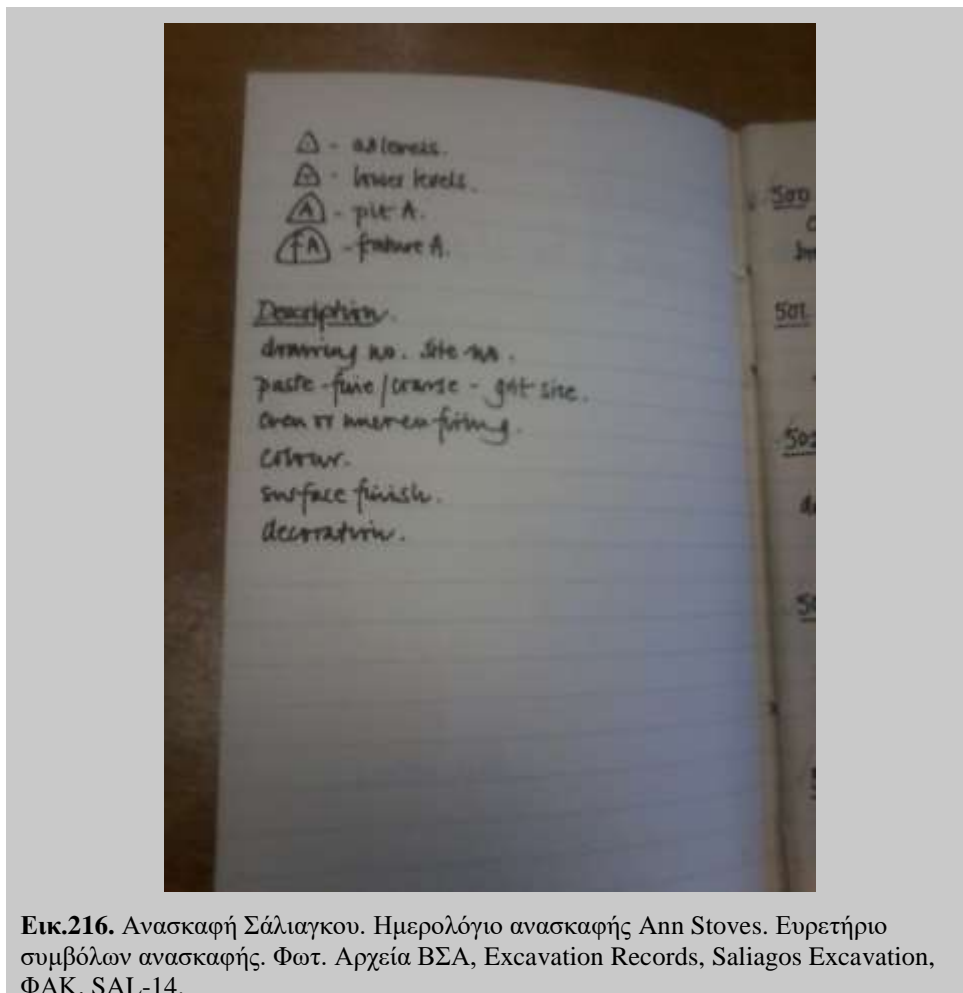 - levels.
- lower levels.
A - pit A.
fA - feature A.
Description.
drawing no. site no.
paste - fine / coarse - grit size.
even or uneven firing.
colour.
surface finish.
decoration.
500
501
502
Εικ.216. Ανασκαφή Σάλιαγκου. Ημερολόγιο ανασκαφής Ann Stoves. Ευρετήριο
συμβόλων ανασκαφής. Φωτ. Αρχεία ΒΣΑ, Excavation Records, Saliagos Excavation,
ΦΑΚ. SAL-14.